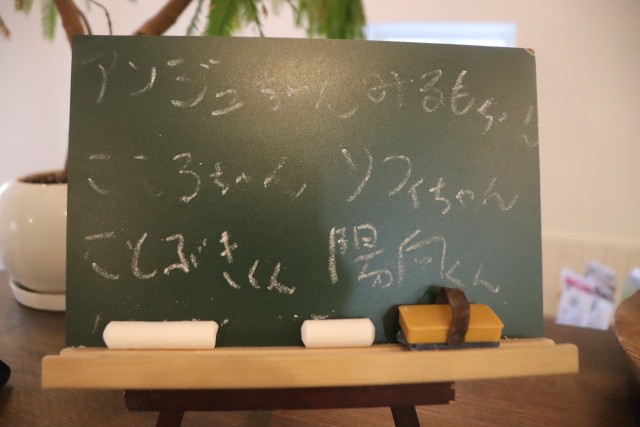 アンジュちゃん みるもちゃん
こころちゃん ソフィちゃん
ことぶきくん 陽向くん